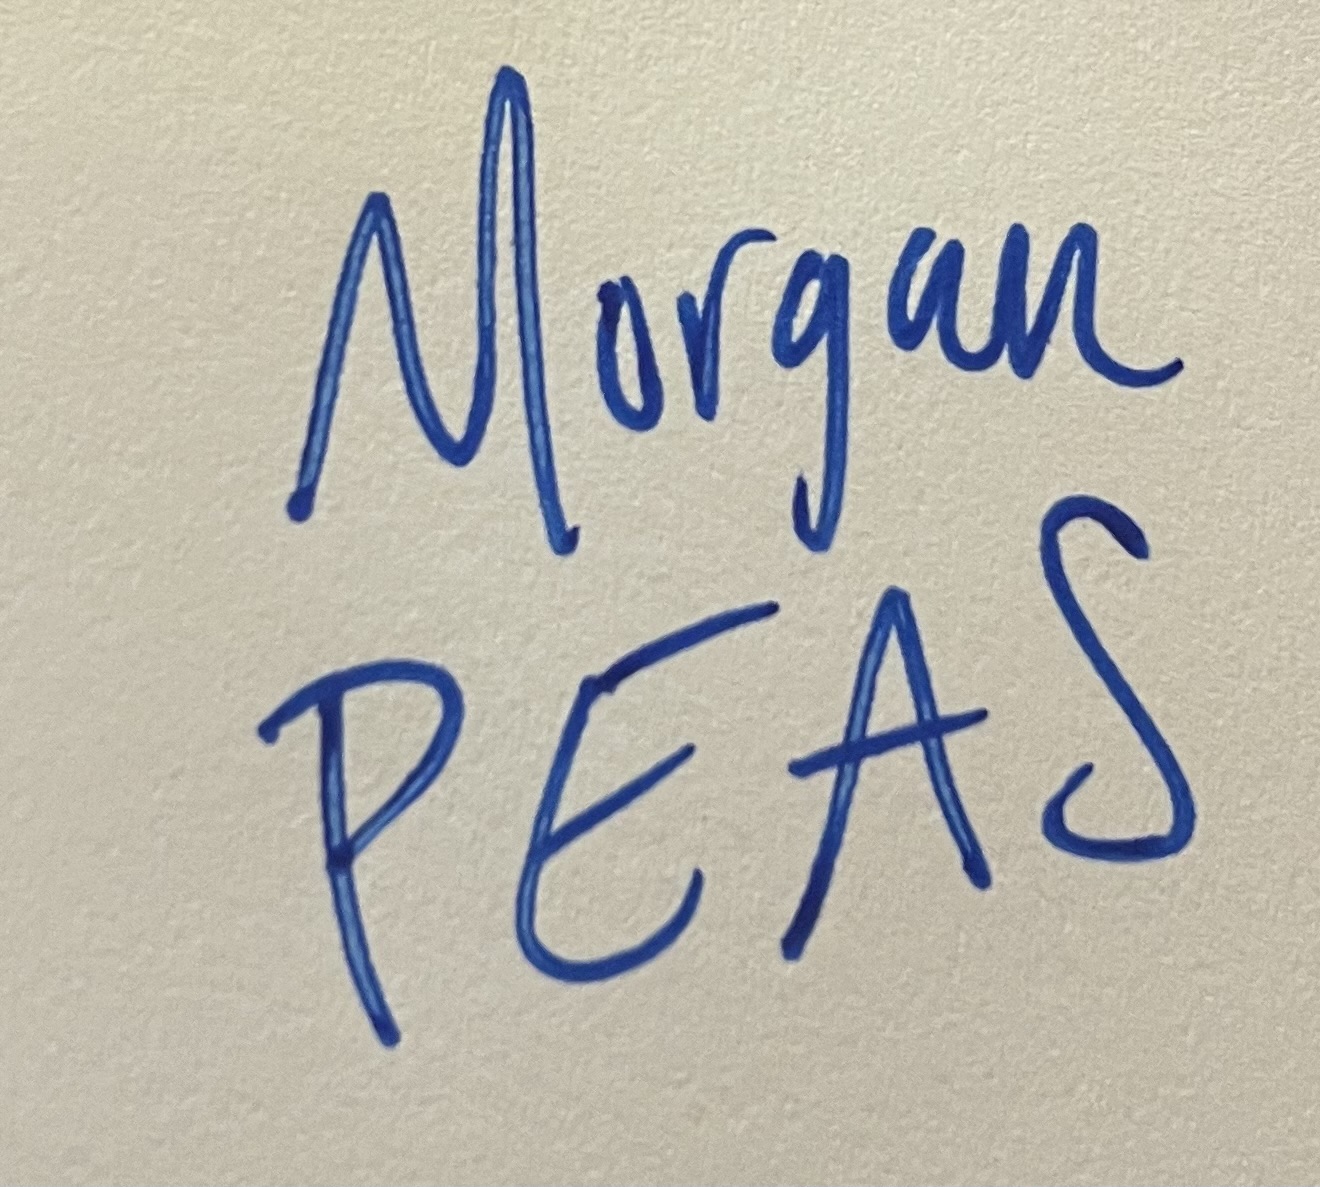 Morgan
PEAS